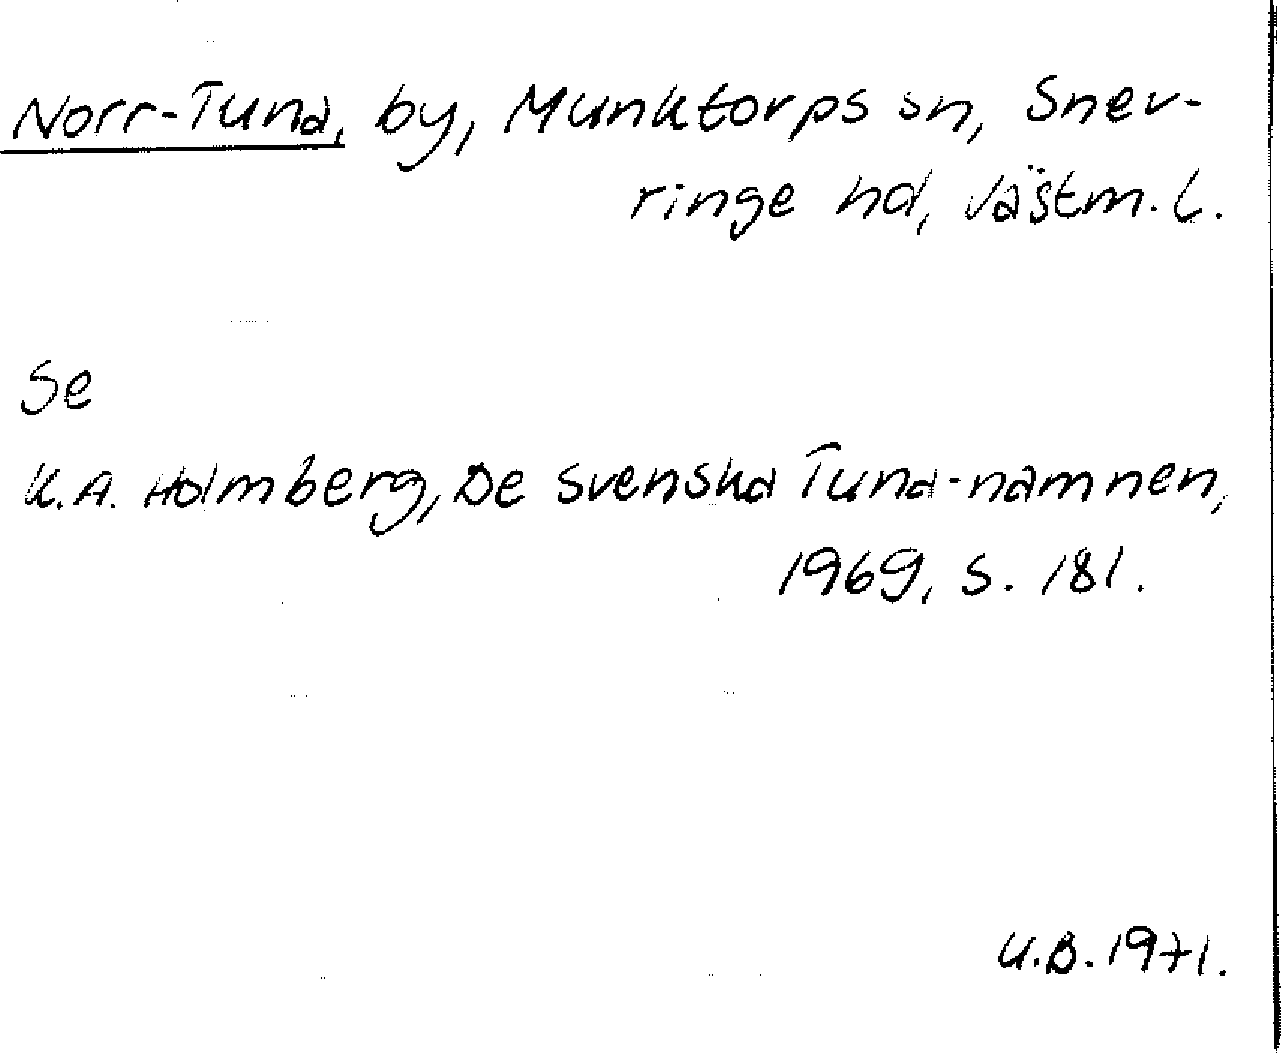 Norr-Tuna, by, Munktorps sn, Snev-
ringe hd, Västm. l.
Se
K.A. Holmberg, De svenska Tuna-namnen,
1969, s. 181.
K.B. 1971.